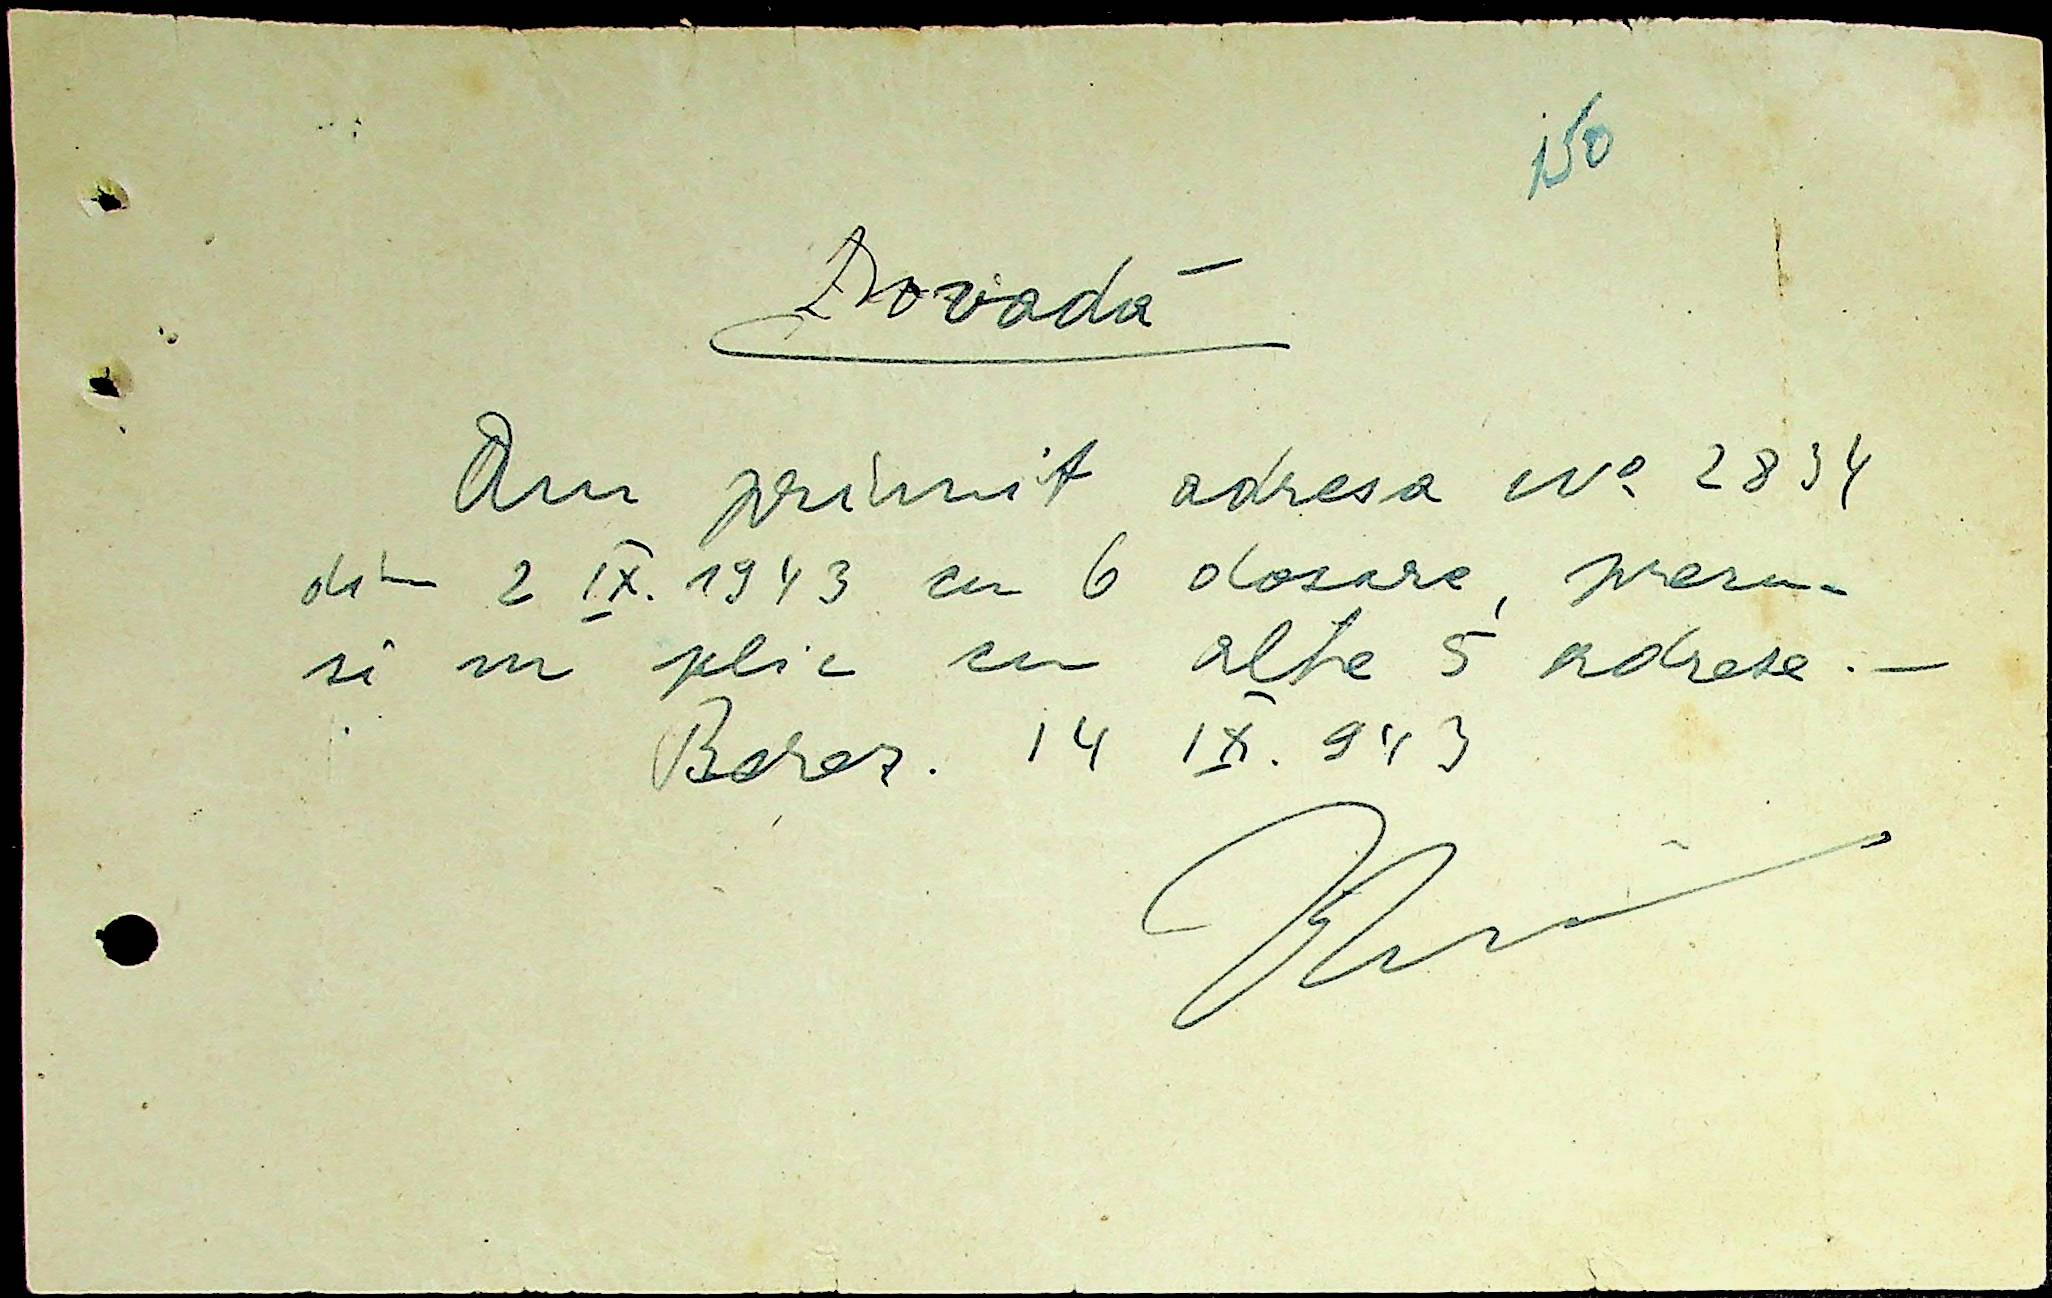 150
Dovadă
Am primit adresa No. 2834
din 2 IX. 1943 cu 6 dosare, precu-
si un plic cu alte 5 adrese. —
Berez. 14 IX. 943